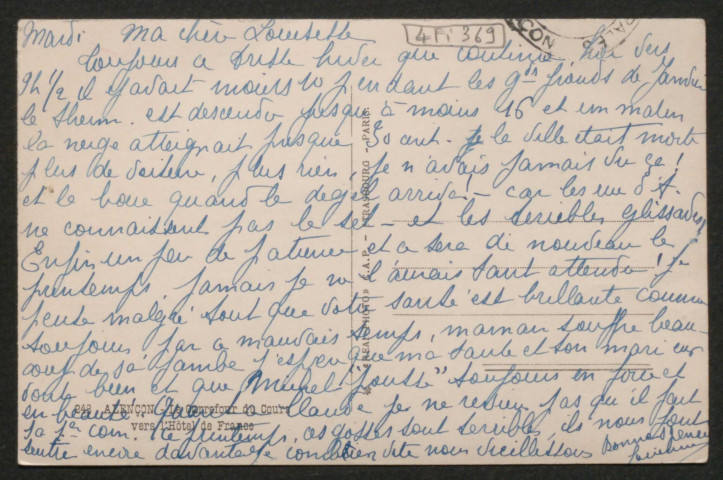 4 Fi 369
Mardi Ma chère Louisette
Toujours ce triste hiver que continue, hier vers
9h 1/2 il y avait moins 10 pendant les gds froids de Janvier
le therm. est descendu presque à moins 16 et un matin
la neige atteignait presque 30 cent. la ville était morte
plus de voiture, plus rien, je n'avais jamais vu ça !
et la boue quand le dégel arriva ! – car les rues d'A.
ne connaissent pas le sel – et les terribles glissades
Enfin un peu de patience et ce sera de nouveau le
printemps jamais je ne l'aurais tant attendu ! je
pense malgré tout que votre santé est brillante comme
toujours par ce mauvais temps, maman souffre beau-
coup de sa jambe j'espère que ma tante et son mari
vont bien et que Muriel pousse toujours en force et
en beauté Claude je ne reviens pas qu'il fait
sa 1ère com. ce printemps, ces gosses sont terribles, ils nous font
sentir encore davantage combien vite nous vieillissons
Bonnes
248. ALENÇON - Le Carrefour du Cours
vers l'Hôtel de France
"REAL-PHOTO" C.A.P. - STRASBOURG - PARIS